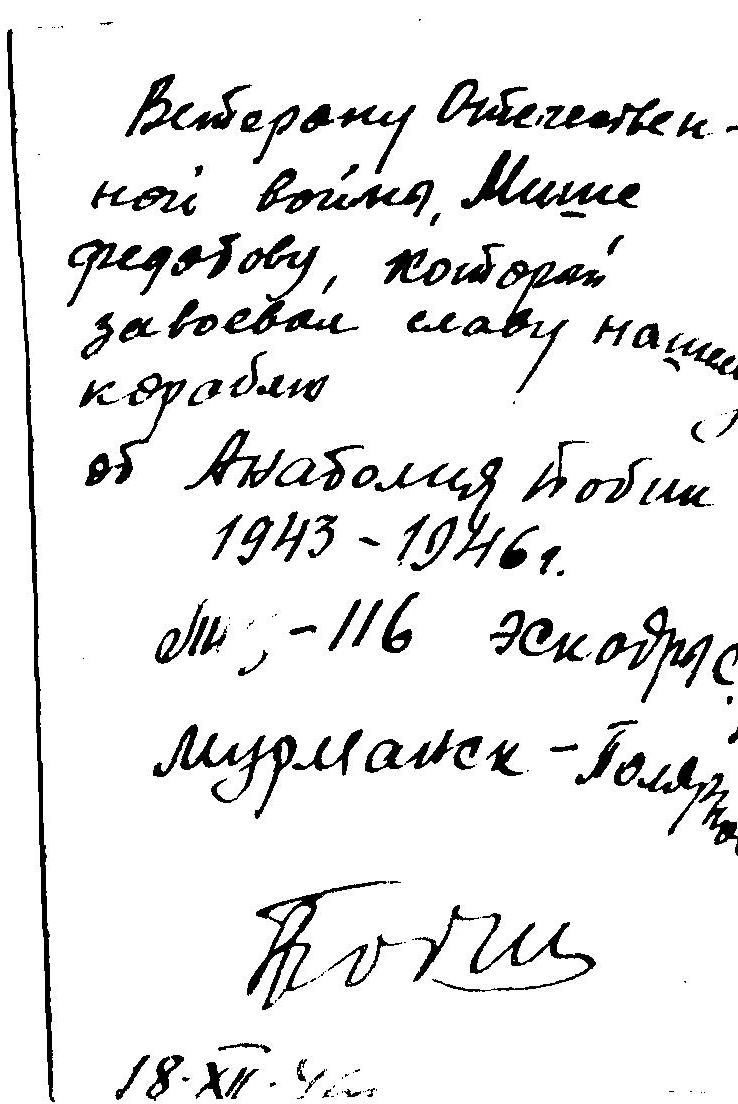 Ветерану Отечествен-
ной война, Мише
Федотову, который
завоевал славу нашему
кораблю
от Анатолия Бобик
1943-1946г.
-116 эскадры С.
Мурманск-Полярное
18.XII.46